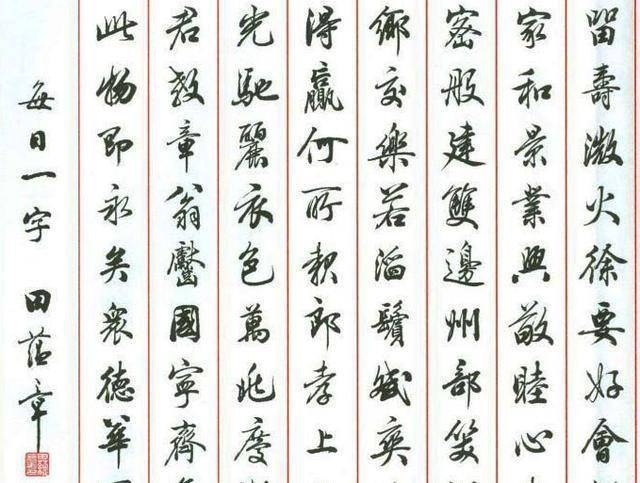 留壽激火徐要好會
家和景業興敬睦心
密般建雙邊州部笑
鄉交樂若滔鬢城奕
得贏何所親郎孝上
光馳麗衣色萬兆慶
君教章翁鑿國寧齊
此物即永矣眾德華
每日一字 田蕴章